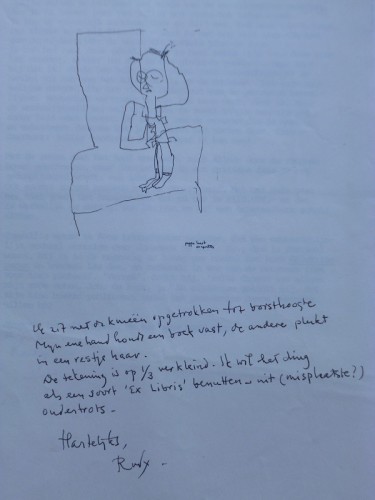 Ik zit met de knieën opgetrokken tot borsthoogte
Mijn ene hand houdt een boek vast, de andere plukt
in een restje haar.
De tekening is op 1/3 verkleind. Ik wil het ding
als een soort 'Ex Libris' benutten - uit (misplaatste?)
ouderstrots.
Hartelijks,
Rudy.